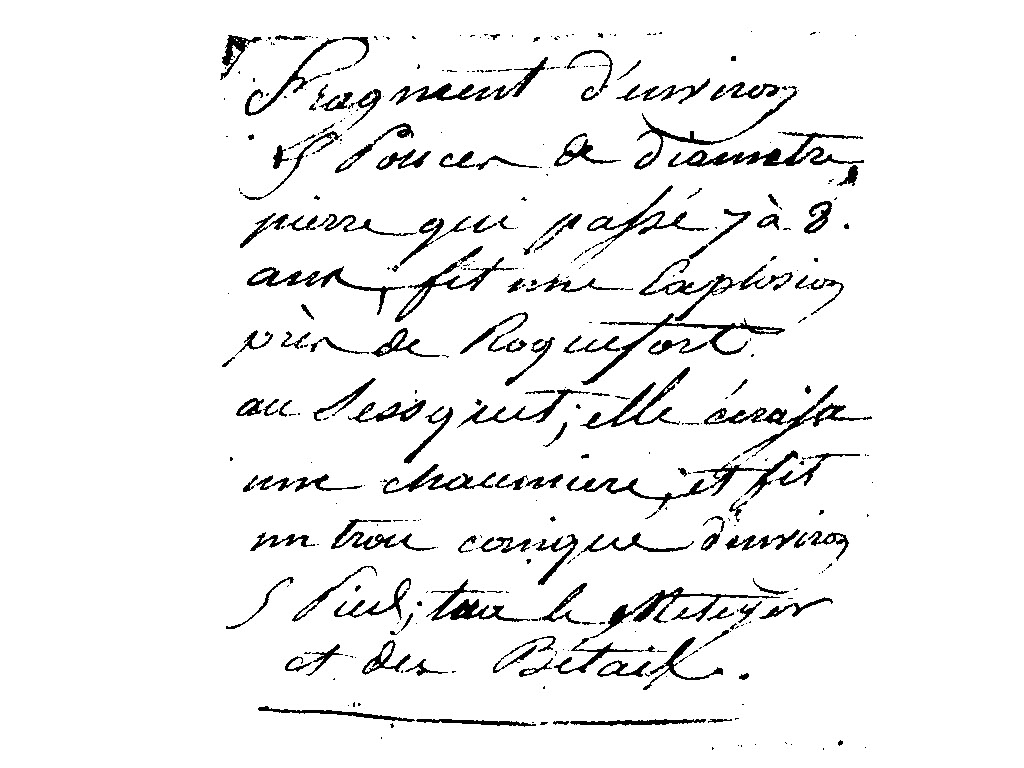 Fragment d'environ
15 Pouces de diametre,
pierre qui passé 7 à 8.
ans, fit une Explosion
près de Roquefort.
au Sessquet; elle écrasa
une chaumiere, et fit
un trou conique d'environ
5 Pieds; tua le Meteyer
et des Bétail.